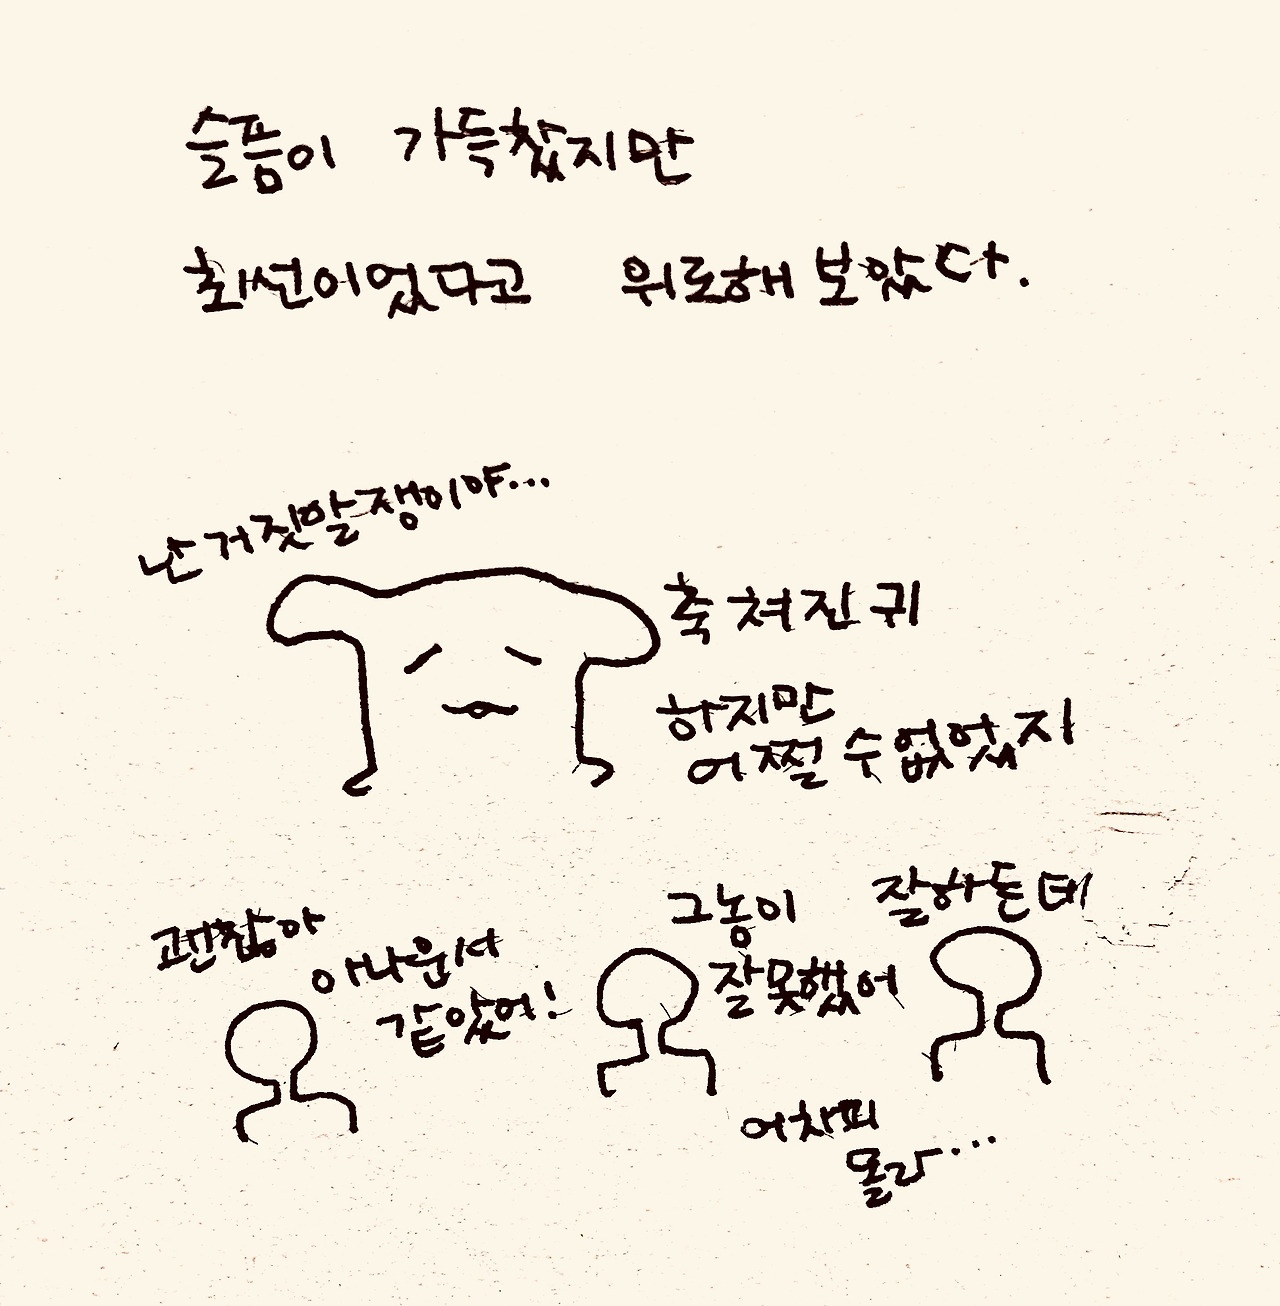 슬픔이 가득찼지만
최선이었다고 위로해 보았다.
난 거짓말쟁이야...
축 쳐진 귀
하지만
어쩔 수 없었지
괜찮아
아나운서
같았어!
그놈이
잘못했어
잘하든데
어차피
몰라...